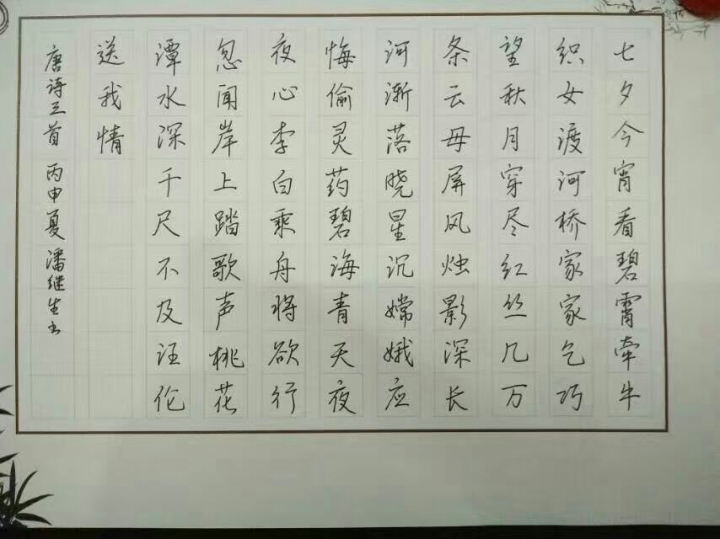 七夕今宵看碧霄牵牛
织女渡河桥家家乞巧
望秋月穿尽红丝几万
条云母屏风烛影深长
河渐落晓星沉嫦娥应
悔偷灵药碧海青天夜
夜心李白乘舟将欲行
忽闻岸上踏歌声桃花
潭水深千尺不及汪伦
送我情
唐诗三首 丙申夏 潘继生书